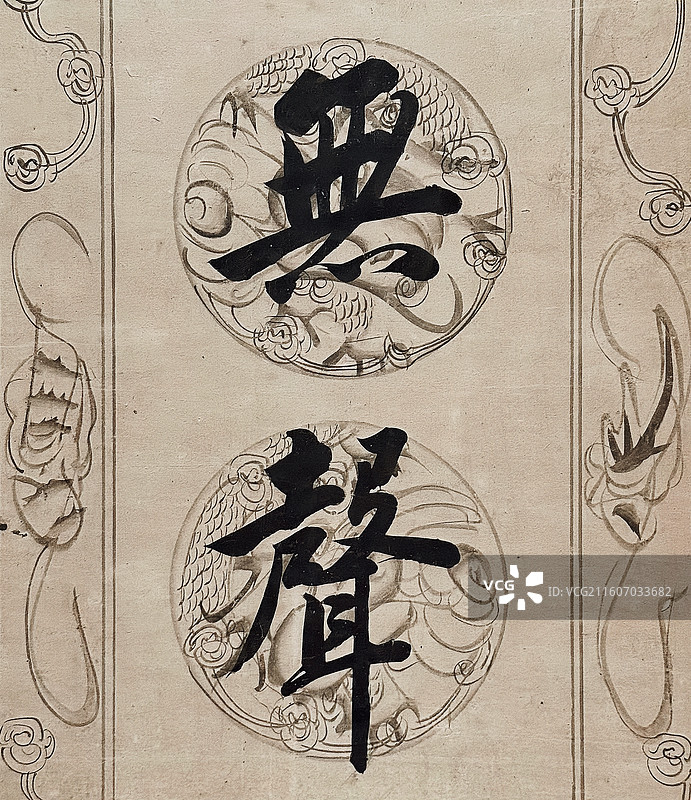 無
聲
VCG
ID: VCG211607033682